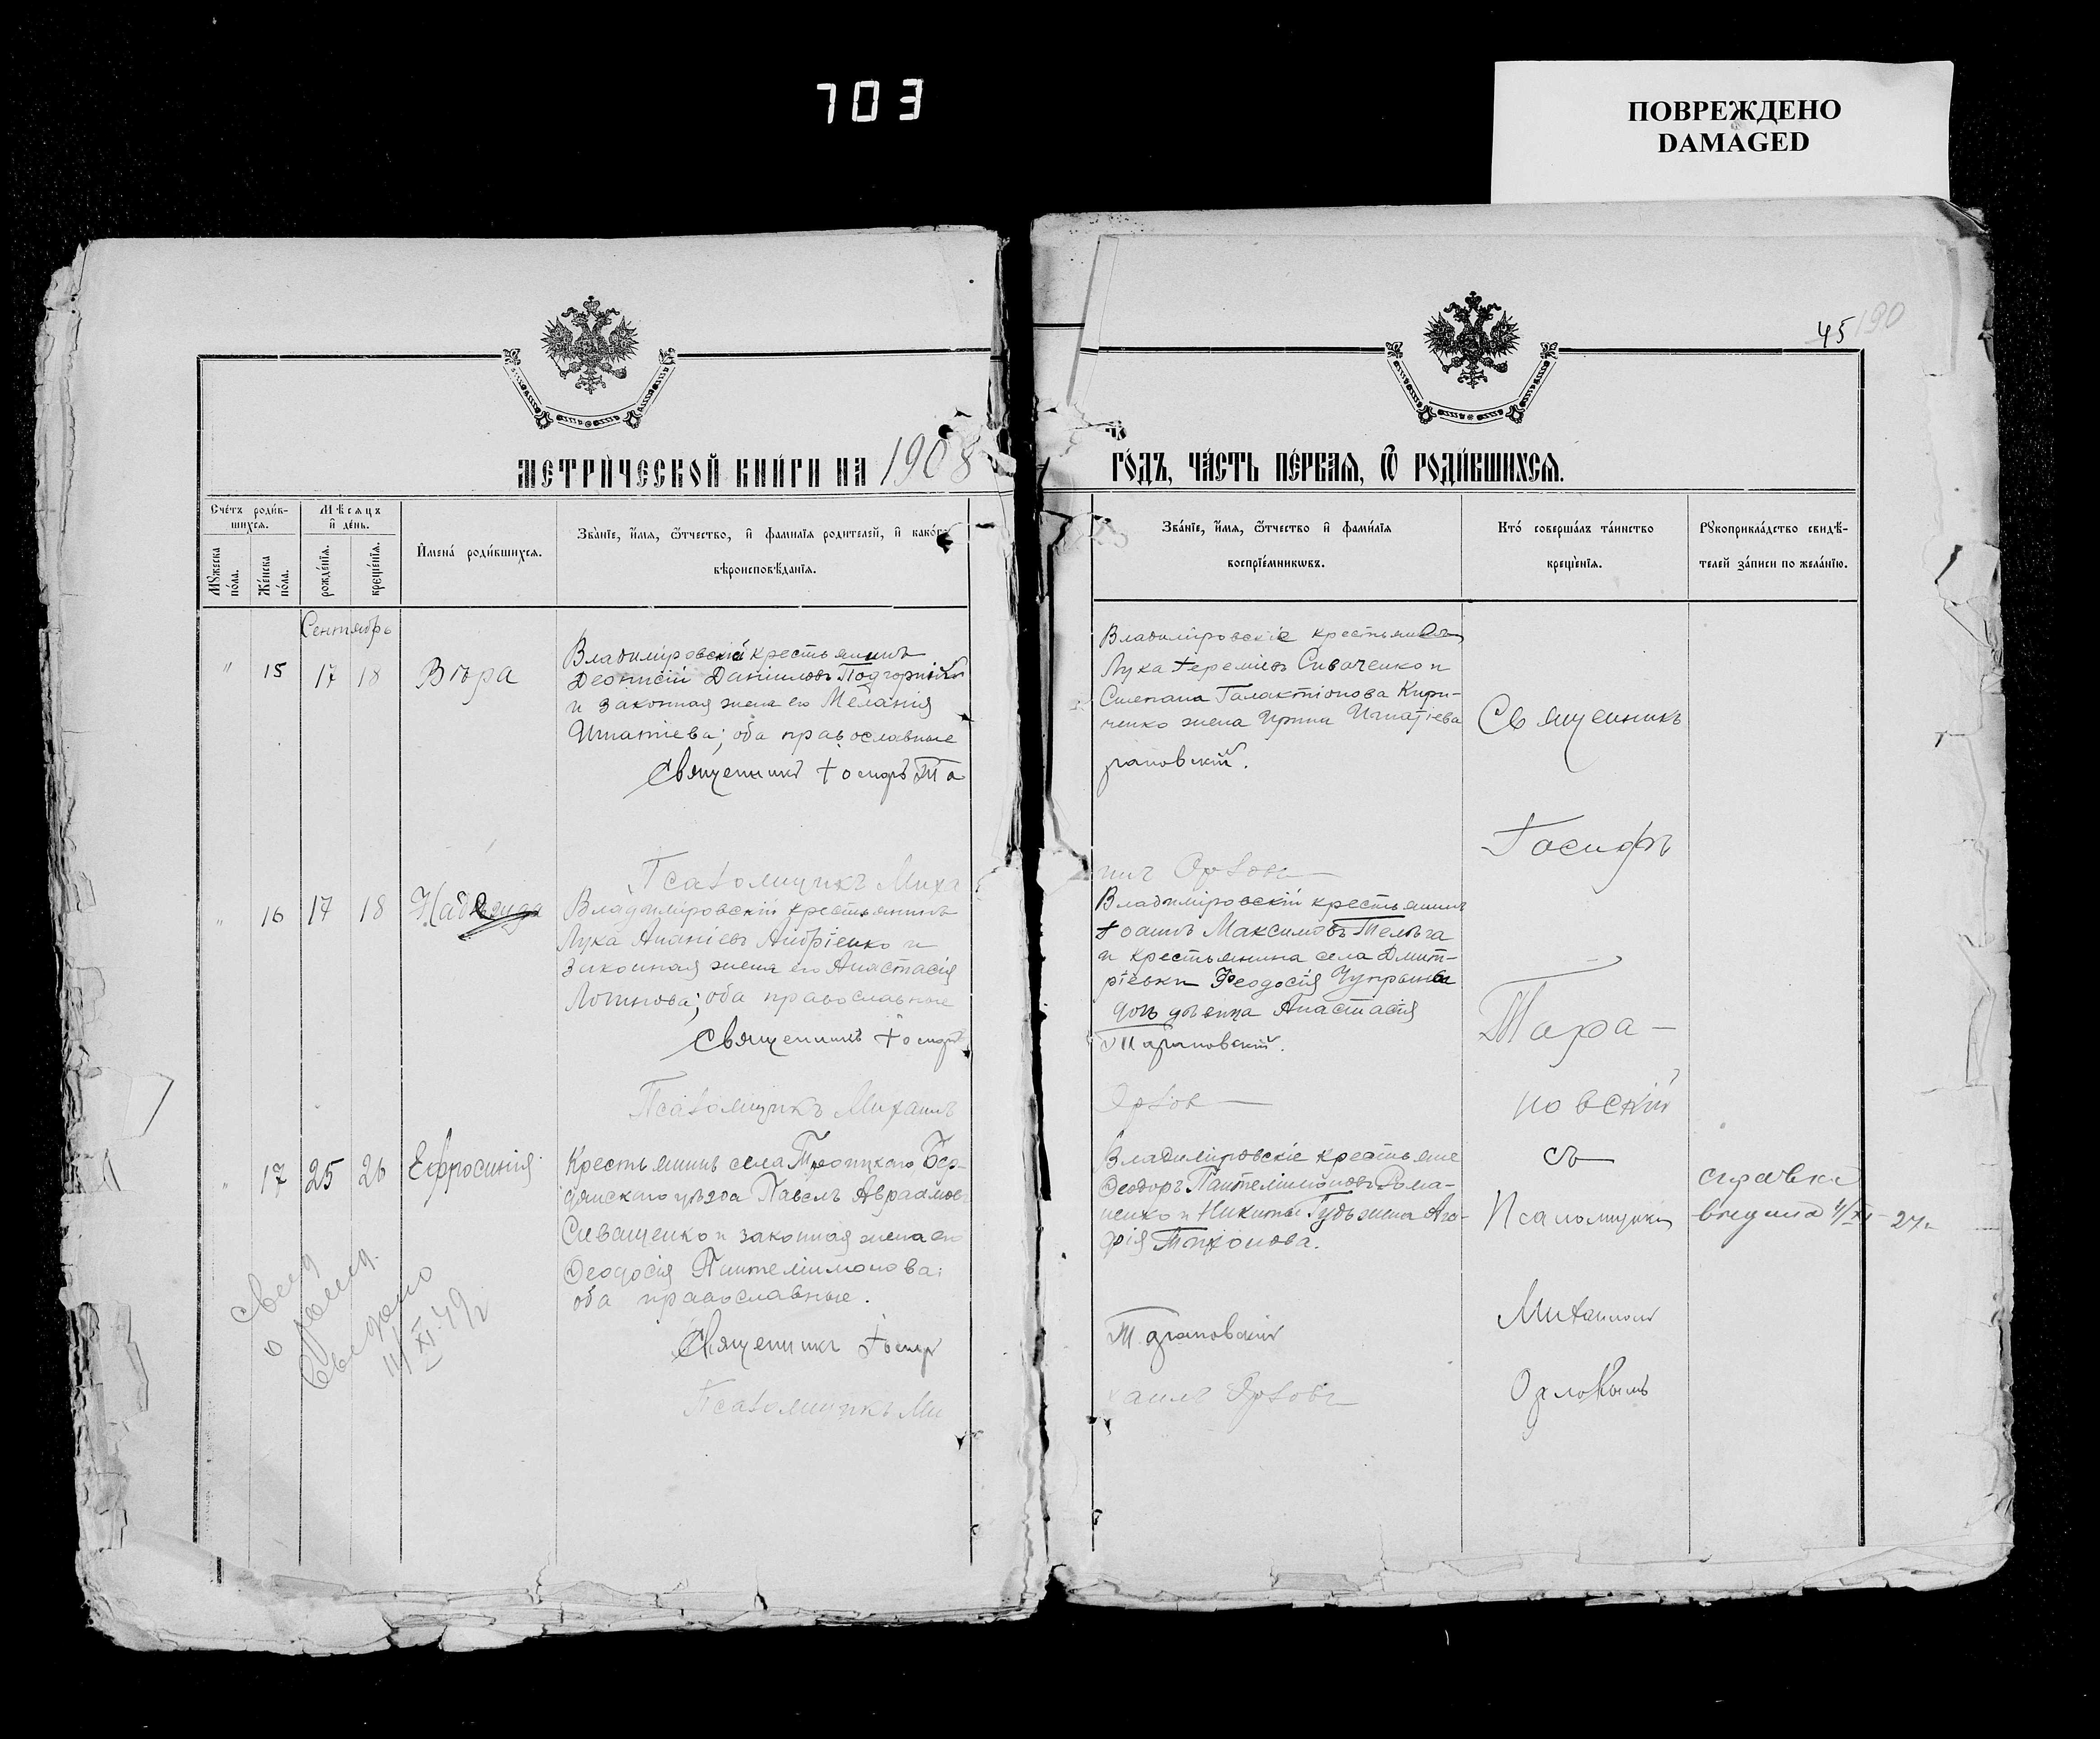 703
ПОВРЕЖДЕНО
DAMAGED
45 190
МЕТРИ́ЧЕСКОЙ КНИ́ГИ НА 1908
ГО́ДЪ, ЧА́СТЬ ПЕ́РВАЯ, Ѿ РОДИ́ВШИХСЯ.
Сче́тъ роди́в-
шихся.
Мѣ́сяцъ
и҆ де́нь.
Мꙋжеска по́ла.
Же́нска по́ла.
рожде́нїя.
креще́нїя.
И҆мена̀ роди́вшихся.
Зва́нїе, и҆́мя, ѻ҆́тчество, и҆ фами́лїя роди́телей, и҆ како́гѡ
вѣроисповѣ́данїя.
Зва́нїе, и҆́мя, ѻ҆́тчество и҆ фами́лїя
воспрїе́мникѡвъ.
Кто̀ соверша́лъ та́инство
креще́нїя.
Рꙋкоприкла́дство свидѣ́-
телей за́писи по жела́нїю.
Сентябрь
" 15 17 18 Вѣра
Владимировскій крестьянинъ
Діонисій Даніиловъ Подгорный
и законная жена его Меланія
Игнатіева; оба православные
Священникъ Іосифъ Та
Псаломщикъ Миха
Владиміровскіе крестьянинъ
Лука Іереміевъ Сиваченко и
Степана Галактіонова Кири-
ченко жена Ирина Игнатіева
рановскій.
илъ Орловъ
" 16 17 18 Надежда
Владиміровскій крестьянинъ
Лука Ананіевъ Андріенко и
законная жена его Анастасія
Логинова; оба православные
Священникъ Іосифъ
Псаломщикъ Михаилъ
Владиміровскій крестьянинъ
Іоаннъ Максимовъ
и крестьянина села Дмит-
ріевки Феодосія
дочь дѣвица Анастасія
Тарановскій.
Орловъ
" 17 25 26 Евфросинія
Крестьянинъ села Троицкаго Бер-
дянскаго уѣзда Павелъ Авраамовъ
Сиващенко и законная жена его
Феодосія Пантелимонова;
оба православные.
Священникъ Іосиф
Псаломщикъ Ми
Владиміровскіе крестьяне
Феодоръ Пантелимоновъ Рома-
ненко и Никиты Гудь жена
Тарановскій
хаилъ Орловъ
Священникъ
Іосифъ
Тара-
новскій
съ
Псаломщик
Михаиломъ
Орловымъ
справка
выдана 4/XI-27г
Свид
о рожд.
выдано
14/XI-49г